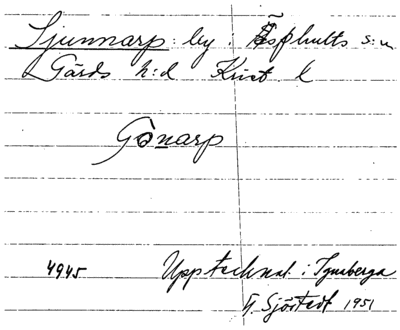 Ljunnarp: by i Äsphults s:n
Gärds h:d Krist l
Gönarp
4945 Upptecknat i Igaberga
G Sjöstedt 1951